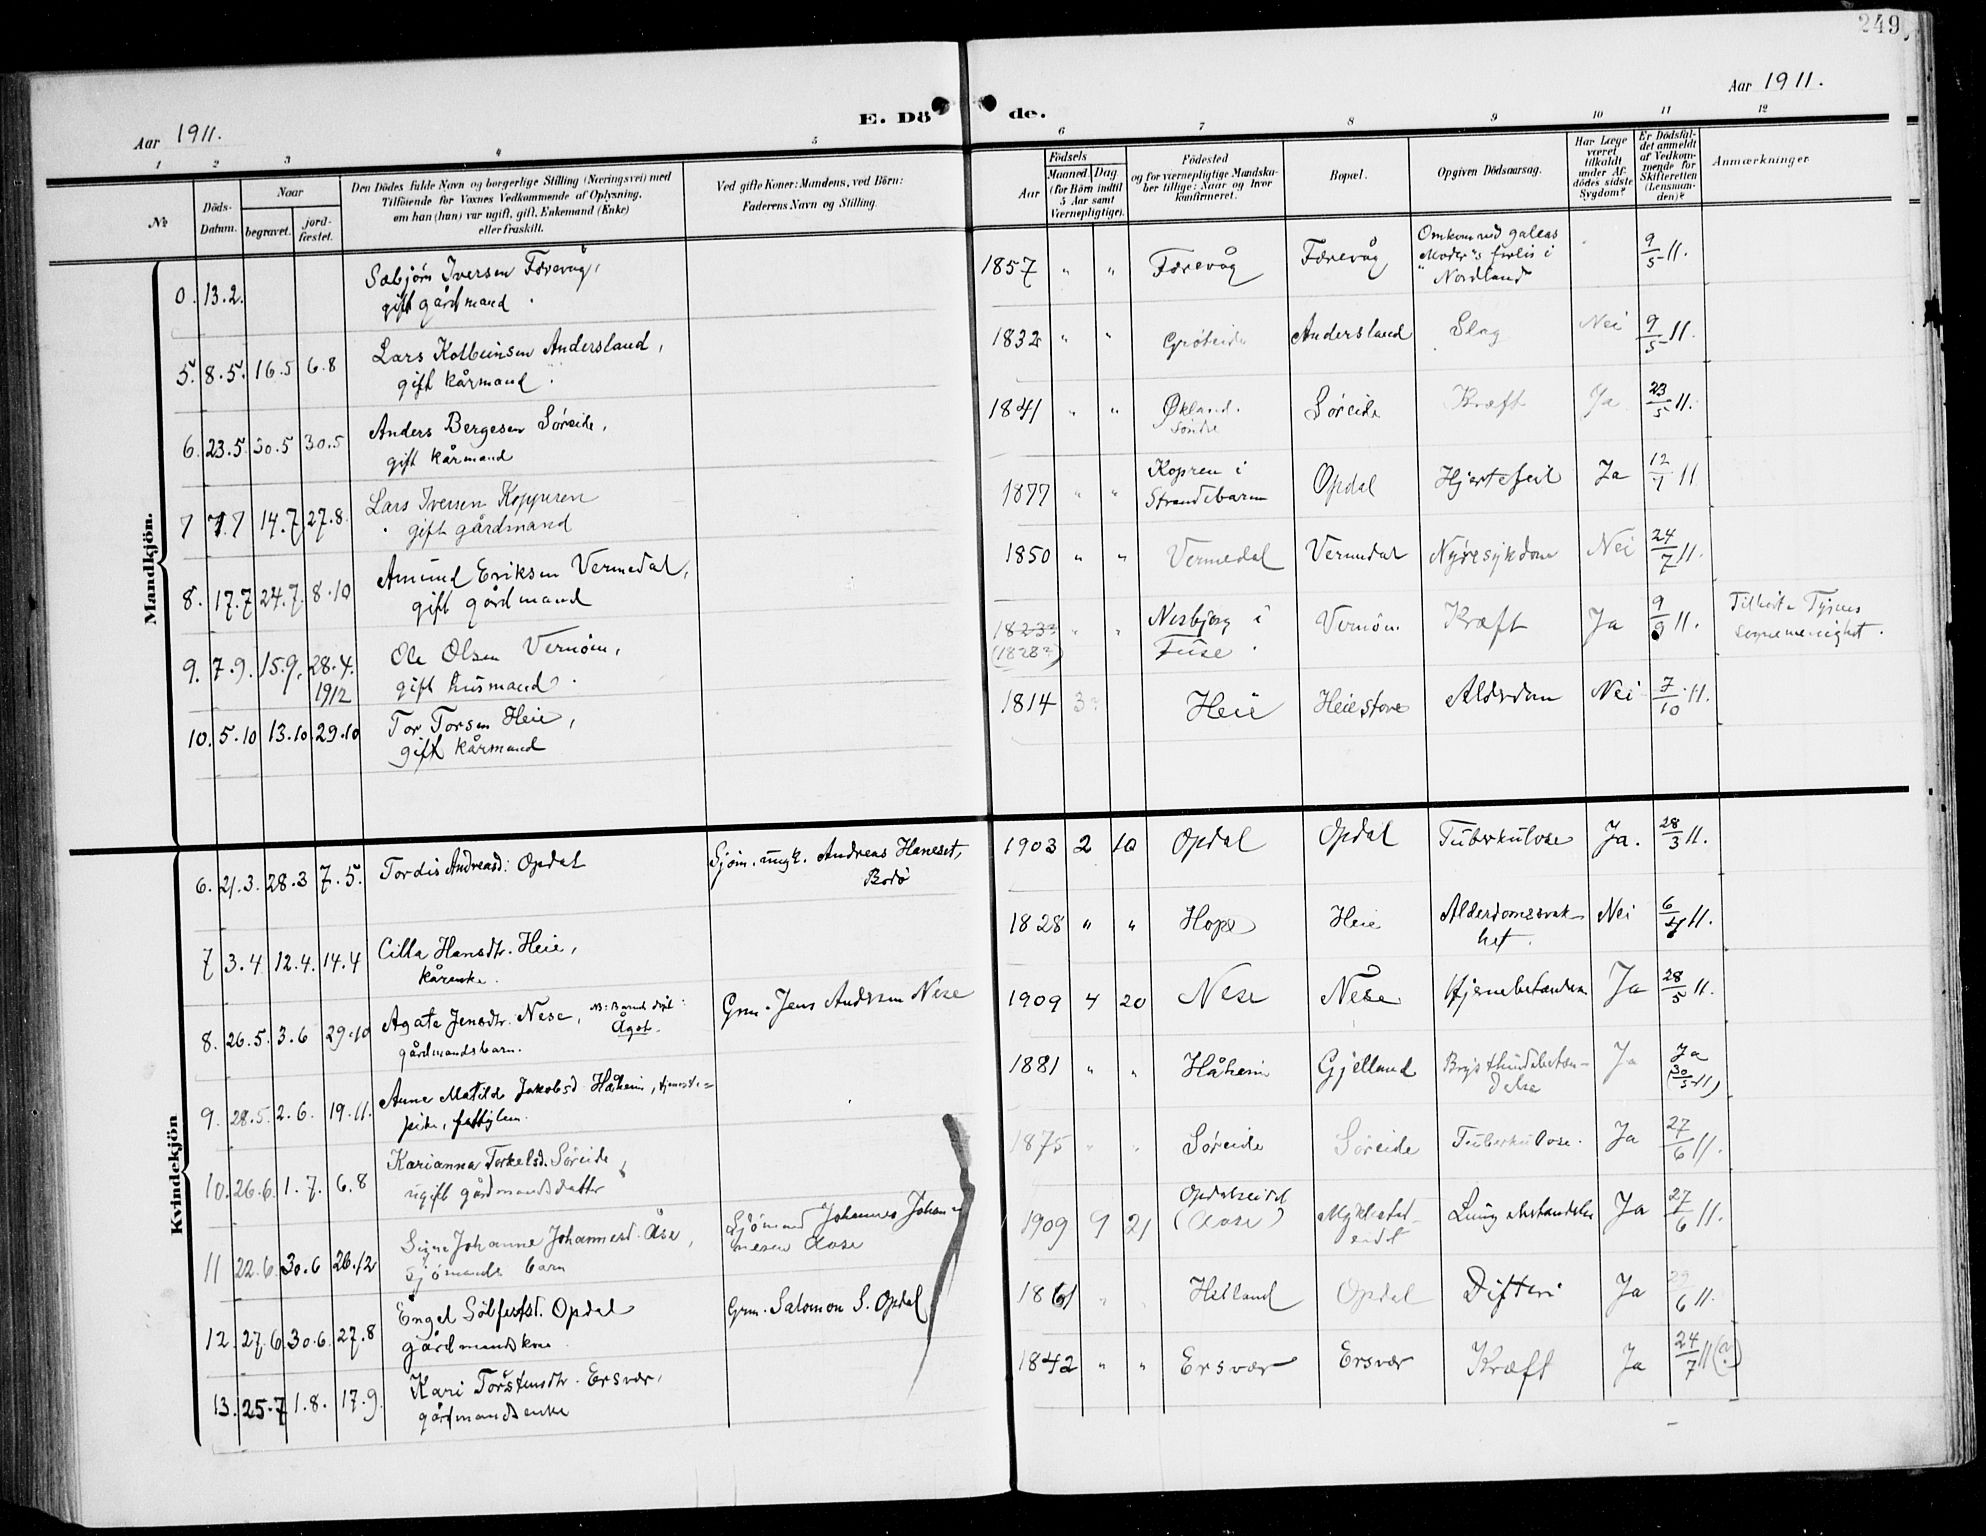 249
Aar 1911.
E. Döde.
Aar 1911.
1 2 3 4 5 6 7 8 9 10 11 12
No
Döds-Datum.
Naar
begravet.
jord-fæstet.
Den Dödes fulde Navn og borgerlige Stilling (Næringsvei) med
Tilföiende for Voxnes Vedkommende af Oplysning,
om han (hun) var ugift, gift, Enkemand (Enke)
eller fraskilt.
Ved gifte Koner: Mandens, ved Börn:
Faderens Navn og Stilling.
Födsels
Aar
Maaned. Dag
(for Börn indtil
5 Aar samt
Værnepligtige).
Födested
og for værnepligtige Mandska-
ber tillige: Naar og hvor
konfirmeret.
Bopæl.
Opgiven Dödsaarsag.
Har Læge
været
tilkaldt
under Af-
dödes sidste
Sygdom?
Er Dödsfal-
det anmeldt
af Vedkom-
mende for
Skifteretten
(Lensman-
den)?
Anmærkninger
Mandkjön.
0. 13.2. Sæbjörn Iversen Færevåg, gift gårdmand. 1857 " " Færevåg Færevåg Omkom ved galeas "Moder"s forlis i Nordland 9/5 11.
5. 8.5. 16.5 6.8 Lars Kolbeinsen Andersland, gift kårmand. 1832 " " Andersland Slag Nei 9/5 11.
6. 23.5. 30.5 30.5 Anders Bergesen Söreide, gift kårmand 1841 " " Økland Söndre Söreide Kræft Ja 23/5 11.
7 7.7 14.7 27.8. Lars Iversen Koppren gift gårdmand 1877 " " Kopren i Strandebarm Opdal Hjertefeil Ja 12/7 11
8. 17.7 24.7 8.10 Amund Eriksen Vermedal, gift gårdmand 1850 " " Vermedal Vermedal Nyresykdom Nei 24/7 11.
9. 7.9. 15.9. 28.4. 1912 Ole Olsen Vernöen, gift husmand. 1823? (1828?) " " Nesbjörg i Fuse. Vernöen Kræft Ja 9/9 11. Tilhörte Tysnes sognemenighet.
10. 5.10 13.10 29.10 Tor Torsen Heie, gift kårmand 1814 3? Heie Heiestove Alderdom Nei 7/10 11.
Kvindekjön
6. 21.3. 28.3 7.5. Tordis Andreasd: Opdal Sjöm. ungk. Andreas Haneset, Bodö 1903 2 10 Opdal Opdal Tuberkulose Ja. 28/3 11.
7 3.4 12.4. 14.4 Cilla Hansdtr. Heie, kårenke. 1828 " " Hope Heie Alderdomssvakhet. Nei 6/4 11.
8. 26.5. 3.6 29.10 Agata Jensdtr. Nese, gårdmandsbarn. Ågot. Grm. Jens Andersen Nese 1909 4 20 Nese Nese Hjernebetændelse Ja 28/5 11.
9. 28.5. 2.6. 19.11. Anna Matilde Jakobsd Håheim, tjeneste- pike, fattiglem. 1881 " " Håheim Gjelland Brysthindebetændelse Ja Ja (30/5 11)
10. 26.6. 1.7. 6.8 Karianna Torkelsd. Söreide, ugift gårdmandsdatter 1875 " " Söreide Söreide Tuberkulose. Ja 27/6 11.
11 22.6. 30.6 26.12 Signe Johanne Johannesd. Åse, sjömands barn Sjömand Johannes Johannesen Aase 1909 9 21 Opdalseidet (Aase) Myklestadeidet Lungebetændelse Ja 27/6 11.
12. 27.6. 30.6. 27.8 Engel Sölfestd. Opdal gårdmandskone Grm. Salomon S. Opdal 1861 " " Helland Opdal Difteri Ja 29/6 11.
13. 25.7 1.8. 17.9. Kari Torstensdtr. Ersvær, gårdmandsenke 1842 " " Ersvær Ersvær Kræft Ja 24/7 11 (?)